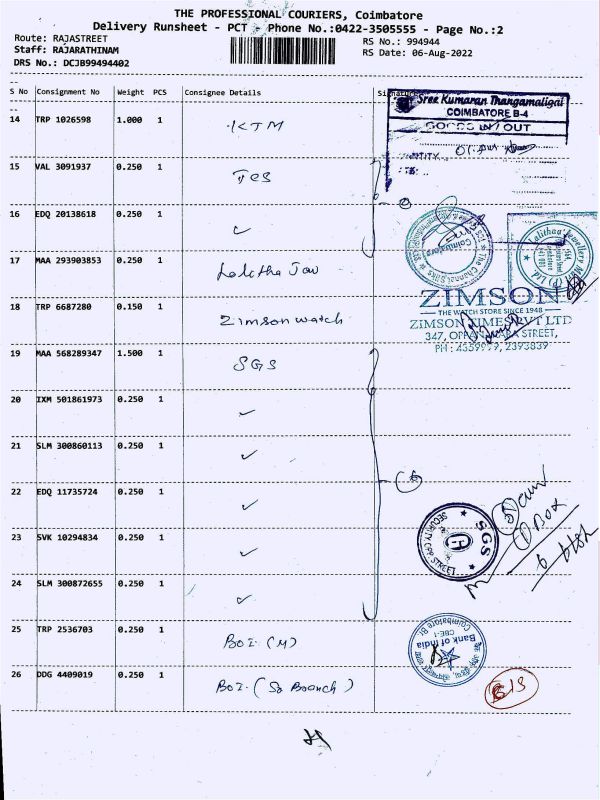 THE PROFESSIONAL COURIERS, Coimbatore
Delivery Runsheet - PCT - Phone No.:0422-3505555 - Page No.:2
Route: RAJASTREET
RS No.: 994944
Staff: RAJARATHINAM
RS Date: 06-Aug-2022
DRS No.: DCJB99494402
S No Consignment No Weight PCS Consignee Details
Sree Kumaran Thangamaligai
COIMBATORE B-4
GOODS IN / OUT
14 TRP 1026598 1.000 1 KTM
15 VAL 3091937 0.250 1 TCS
16 EDQ 20138618 0.250 1 ✓
17 MAA 293903853 0.250 1 Lalitha Jew
ZIMSON
THE WATCH STORE SINCE 1948
18 TRP 6687280 0.150 1 Zimson watch
ZIMSON TIMES PVT LTD
STREET,
PH : 4359999, 2393839
19 MAA 568289347 1.500 1 SGS
20 IXM 501861973 0.250 1 ✓
21 SLM 300860113 0.250 1 ✓
22 EDQ 11735724 0.250 1 ✓
23 SVK 10294834 0.250 1 ✓
SGS
24 SLM 300872655 0.250 1 ✓
25 TRP 2536703 0.250 1 BOI (M)
Bank of India
26 DDG 4409019 0.250 1 BOI (So Branch)